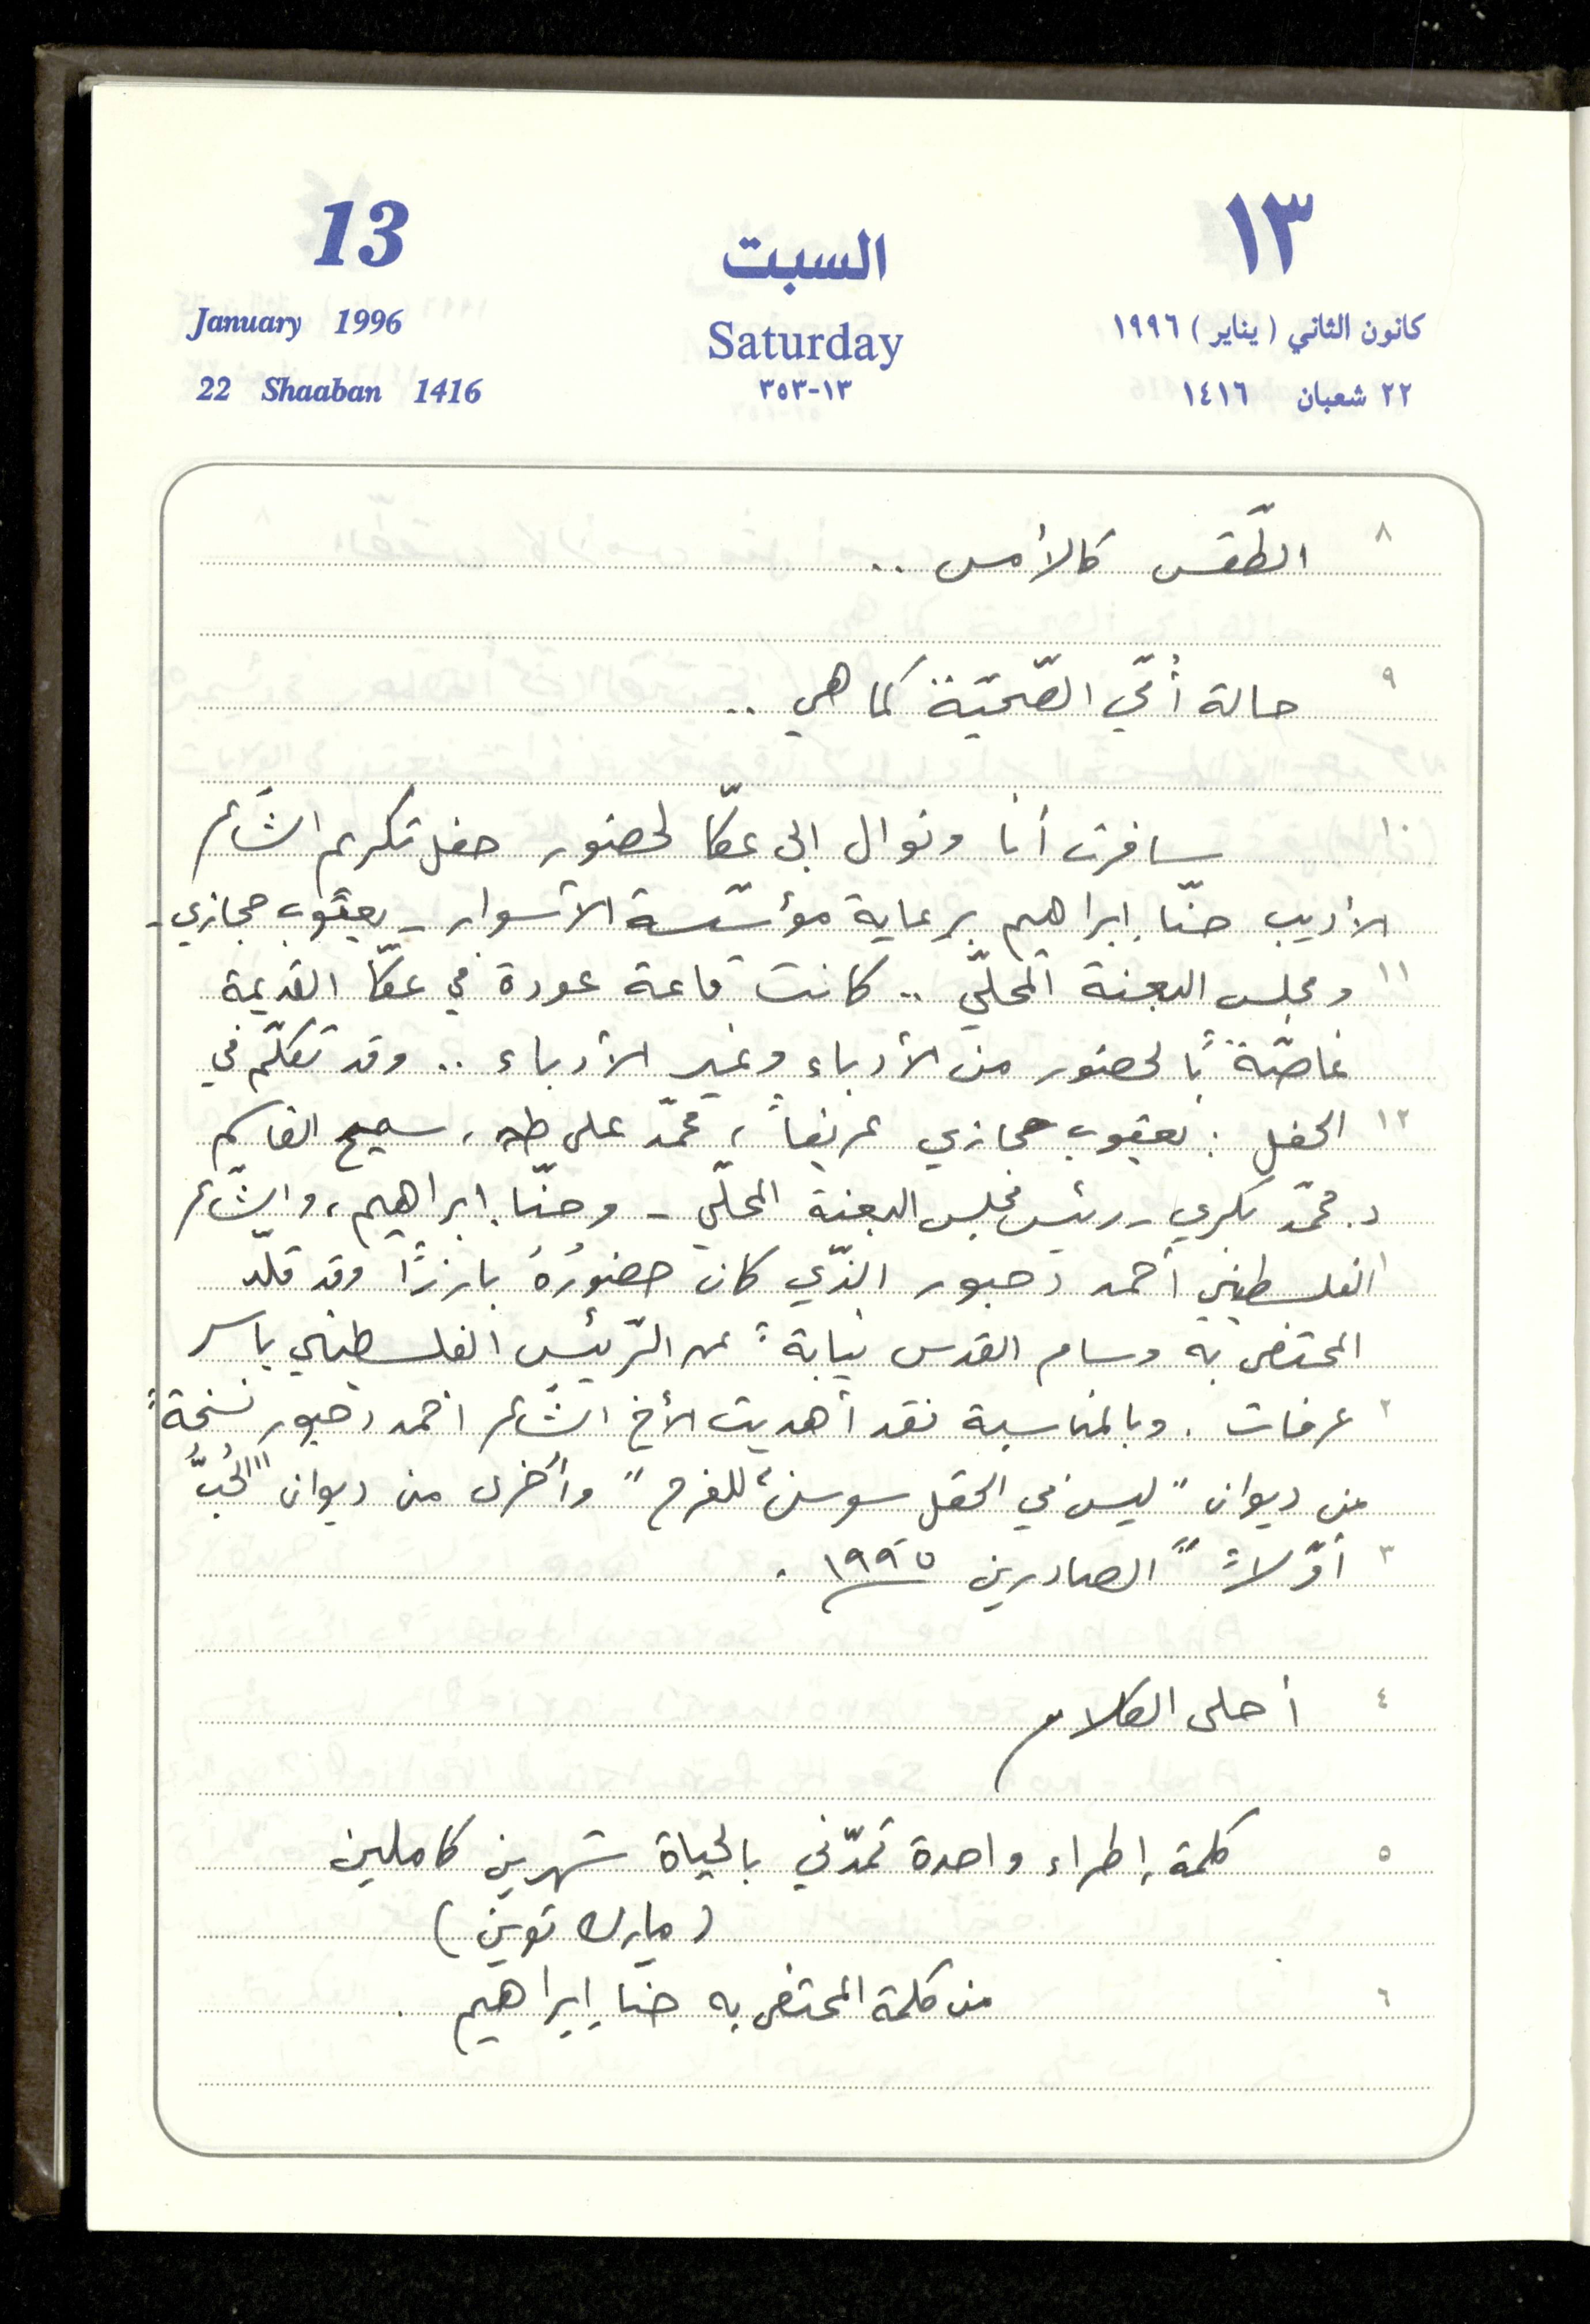 13
السبت
١٣
January 1996
Saturday
كانون الثاني (يناير) ١٩٩٦
22 Shaaban 1416
١٣-٣٥٣
٢٢ شعبان ١٤١٦
٨ الطّقس كالأمس ..
٩ حالة أُمّي الصّحيّة كما هي ..
١٠ سافرت أنا ونوال إلى عكّا لحضور حفل تكريم الشّاعر
الأديب حنّا إبراهيم برعاية مؤسّسة الأسوار - يعقوب حجازي -
١١ ومجلس البعنة المحلّي .. كانت قاعة عودة في عكّا القديمة
غاصّةً بالحضور من الأدباء وغير الأدباء .. وقد تكلّم في
١٢ الحفل : يعقوب حجازي عريفاً، محمّد علي طه، سميح القاسم
د. محمّد بكري - رئيس مجلس البعنة المحلّي - وحنّا إبراهيم، والشّاعر
١ الفلسطيني أحمد دحبور الذّي كان حضورُهُ بارزًا وقد قلّد
المحتفى به وسام القدس نيابةً عن الرّئيس الفلسطيني ياسر
٢ عرفات . وبالمناسبة فقد أهديت الأخ الشّاعر أحمد دحبور نسخةً
من ديوان "ليس في الحقل سوسنٌ للفرح" وأخرى من ديوان "الحُبُّ
٣ أوّلاً" الصادرين ١٩٩٥ .
٤ أحلى الكلام
٥ كلمة إطراء واحدة تمدّني بالحياة شهرين كاملين
(مارك توين)
٦ من كلمة المحتفى به حنا إبراهيم .